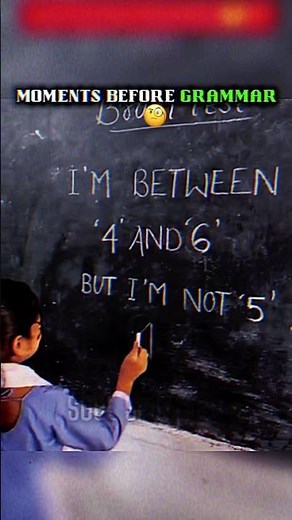 MOMENTS BEFORE GRAMMAR
I'M BETWEEN
'4' AND '6'
BUT I'M NOT '5'